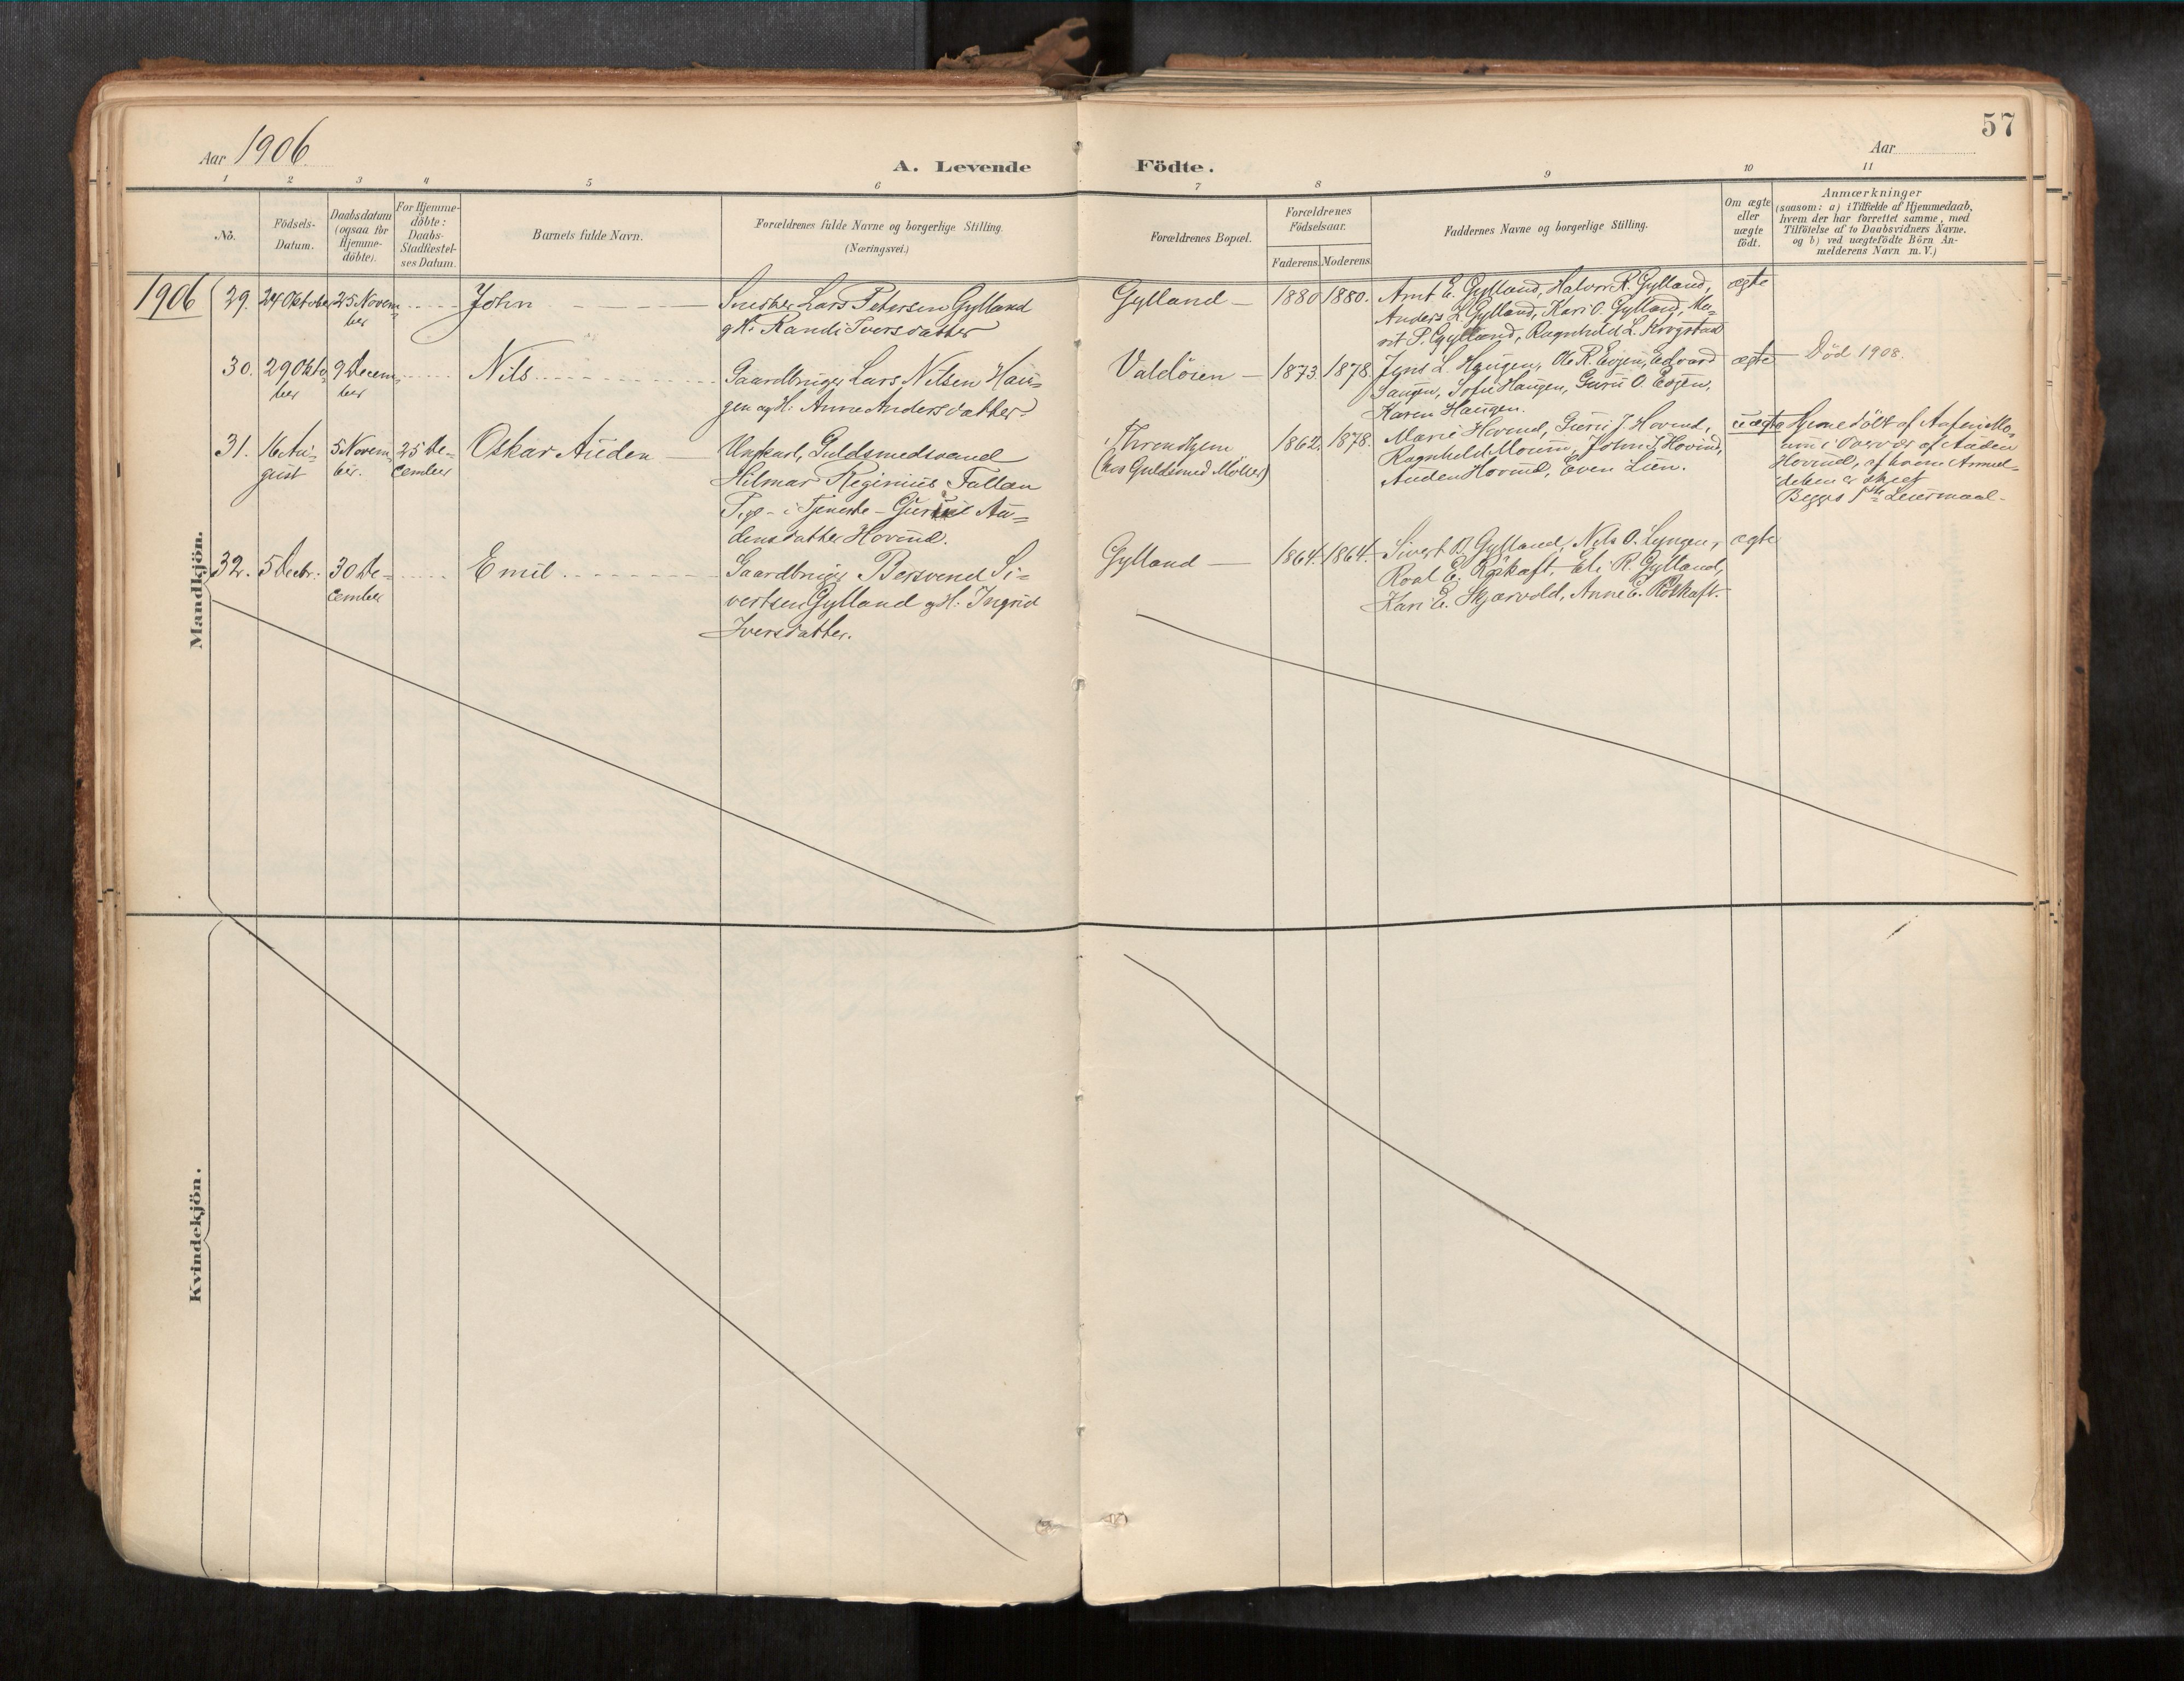 57
Aar 1906
Aar
A. Levende Födte.
1 2 3 4 5 6 7 8 9 10 11
No.
Födsels-
Datum.
Daabsdatum
(ogsaa for
Hjemme-
döbte).
For Hjemme-
döbte:
Daabs-
Stadfæstel-
ses Datum.
Barnets fulde Navn.
Forældrenes fulde Navne og borgerlige Stilling.
(Næringsvei.)
Forældrenes Bopæl.
Forældrenes
Födselsaar.
Faderens. Moderens.
Faddernes Navne og borgerlige Stilling.
Om ægte
eller
uægte
födt.
Anmærkninger
(saasom: a) i Tilfælde af Hjemmedaab,
hvem der har forrettet samme, med
Tilföielse af to Daabsvidners Navne,
og b) ved uægtefödte Börn An-
melderens Navn m.V.)
Mandkjön.
1906
29.
24 Oktober
25 Novem-
ber
John
Snedker Lars Petersen Gylland
og H: Randi Iversdatter
Gylland
1880 1880.
Arnt E. Gylland, Halvor R. Gylland,
Anders L. Gylland, Kari O. Gylland, Me-
rit P. Gylland, Ragnhild L. Krogstad
ægte
30.
29 Okto-
ber
9 Decem-
ber
Nils
Gaardbruger Lars Nilsen Hau-
gen og H: Anne Andersdatter
Valdöien
1873. 1878.
Jens L. Haugen, Ole R. Evjen, Edvard
Haugen, Sofie Haugen, Guru O. Evjen,
Karen Haugen.
ægte
Död 1908.
31.
16 Au-
gust
5 Novem-
ber.
25 De-
cember
Oskar Auden
Ungkarl, Guldsmedsvend
Hilmar Reginius Fallan
Pige - i Tjeneste - Au-
densdatter Hovind.
Throndhjem
(hos Guldsmed Möller)
1862. 1878.
Marie Hovind, Guru J. Hovind,
Ragnhild Moum, John J. Hovind,
Auden Hovind, Even Lien.
uægte
Hjemmedöbt af Mo-
um i Overvær af Auden
Hovind, af hvem Anmel-
delsen er skeet
Begges 1ste Leiermaal
32.
5 Decbr:
30 De-
cember
Emil
Gaardbruger Bersvend Si-
vertsen Gylland og H: Ingrid
Iversdatter.
Gylland
1864. 1864.
Sivert B. Gylland, Nils O. Lyngen,
Roal E. Röskaft, Eli R. Gylland,
Kari E. Skjærvold, Anne E. Röskaft.
ægte
Kvindekjön.